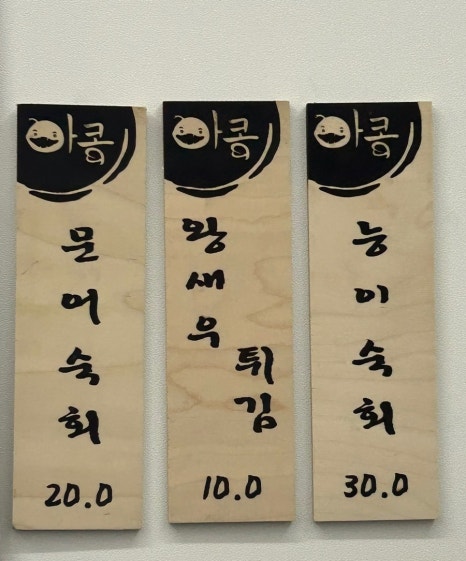 아콤
문어숙회
20.0
아콤
왕새우
튀김
10.0
아콤
능이숙회
30.0